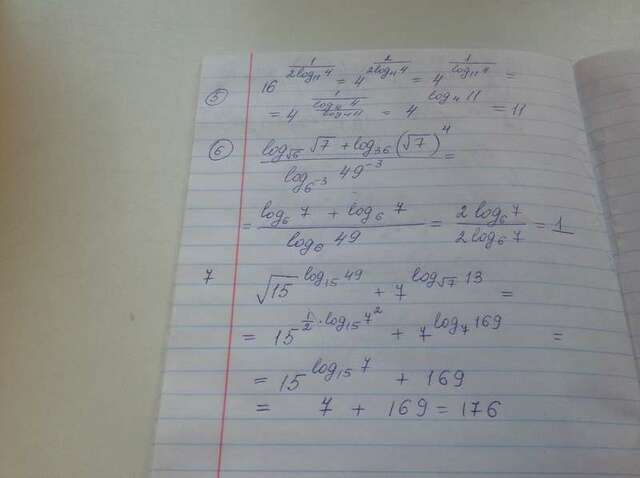 ⑤ 16^(1/(2log₁₁4)) = 4^(2/(2log₁₁4)) = 4^(1/(log₁₁4)) =
= 4^(1/(log₄4/log₄11)) = 4^(log₄11) = 11
⑥ (log_√6 √7 + log₃₆(√7)⁴)/(log_6⁻³ 49⁻³) =
= (log₆7 + log₆7)/(log₆49) = (2log₆7)/(2log₆7) = 1
7 √15^(log₁₅49) + 7^(log_√7 13) =
= 15^(1/2·log₁₅7²) + 7^(log₇169) =
= 15^(log₁₅7) + 169
= 7 + 169 = 176